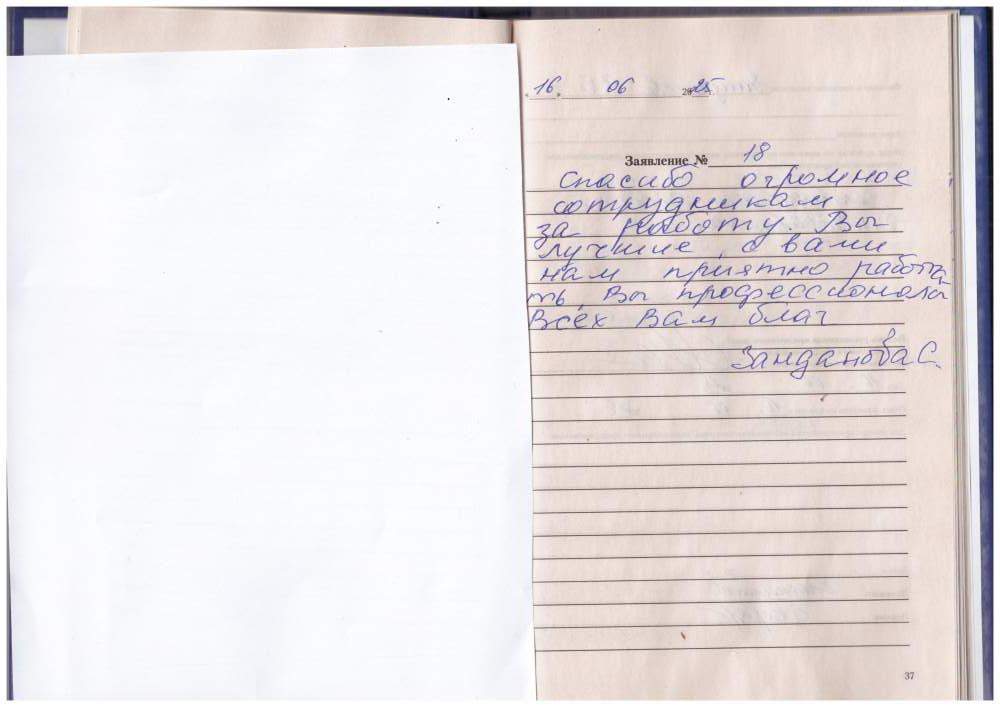 16. 06 2025 г.
Заявление № 18
Спасибо огромное
сотрудникам
за работу. Вы
лучшие, с вами
нам приятно работа
ть, Вы профессионалы
Всех Вам благ
Занданова С.
37